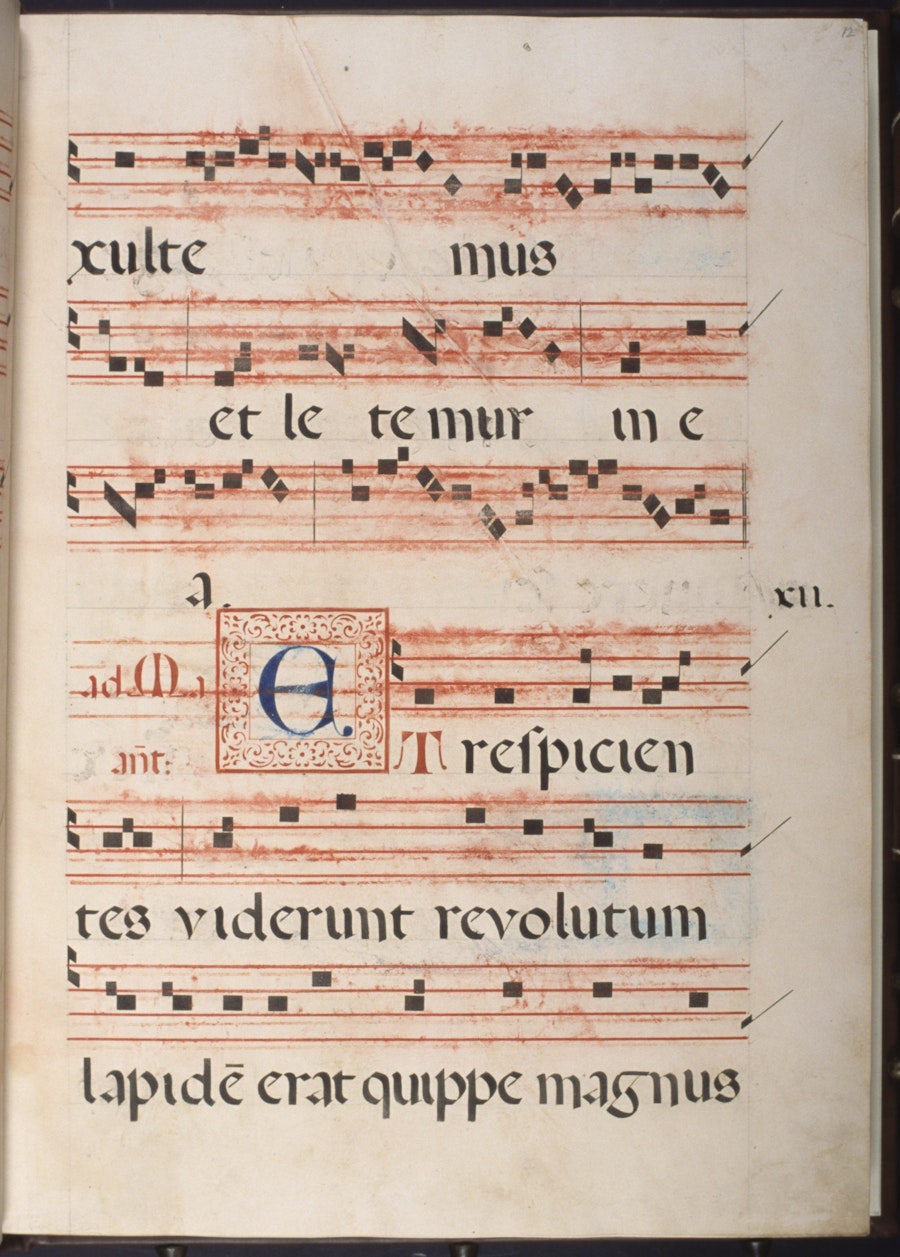 12
xulte mus
et le te mur in e
a. xii.
ad Ma
ant: ET respicien
tes viderunt revolutum
lapidē erat quippe magnus